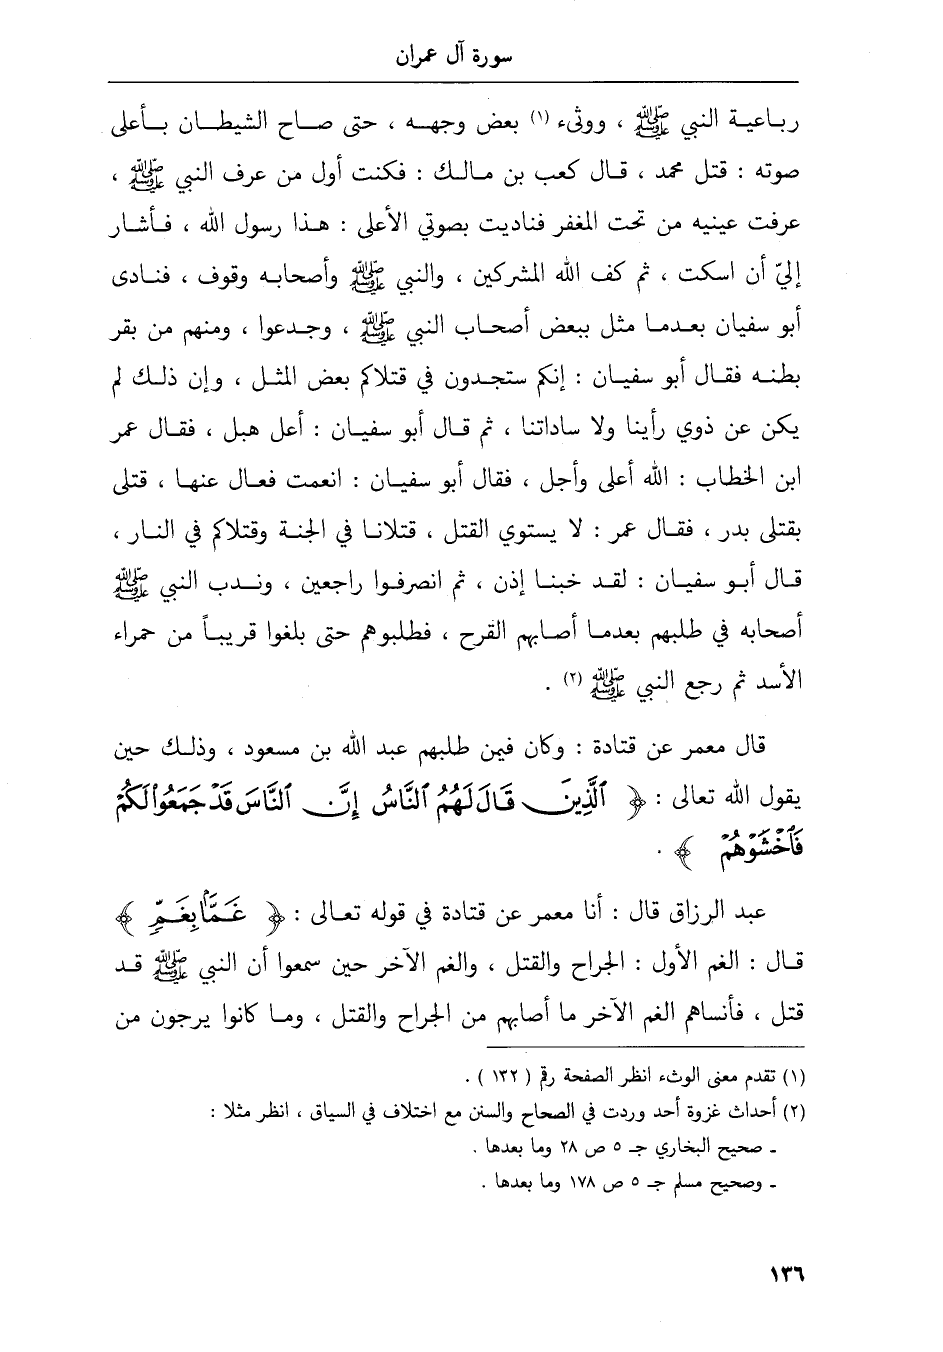 سورة آل عمران
رباعية النبي ﷺ ، ووثىء (١) بعض وجهه ، حتى صاح الشيطان بأعلى
صوته : قتل محمد ، قال كعب بن مالك : فكنت أول من عرف النبي ﷺ ،
عرفت عينيه من تحت المغفر فناديت بصوتي الأعلى : هذا رسول الله ، فأشار
إليّ أن اسكت ، ثم كف الله المشركين ، والنبي ﷺ وأصحابه وقوف ، فنادى
أبو سفيان بعدما مثل ببعض أصحاب النبي ﷺ ، وجدعوا ، ومنهم من بقر
بطنه فقال أبو سفيان : إنكم ستجدون في قتلاكم بعض المثل ، وإن ذلك لم
يكن عن ذوي رأينا ولا ساداتنا ، ثم قال أبو سفيان : أعل هبل ، فقال عمر
ابن الخطاب : الله أعلى وأجل ، فقال أبو سفيان : انعمت فعال عنها ، قتلى
بقتلى بدر ، فقال عمر : لا يستوي القتل ، قتلانا في الجنة وقتلاكم في النار ،
قال أبو سفيان : لقد خبنا إذن ، ثم انصرفوا راجعين ، وندب النبي ﷺ
أصحابه في طلبهم بعدما أصابهم القرح ، فطلبوهم حتى بلغوا قريباً من حمراء
الأسد ثم رجع النبي ﷺ (٢) .
قال معمر عن قتادة : وكان فيمن طلبهم عبد الله بن مسعود ، وذلك حين
يقول الله تعالى : ﴿ ٱلَّذِينَ قَالَ لَهُمُ ٱلنَّاسُ إِنَّ ٱلنَّاسَ قَدْ جَمَعُوا۟ لَكُمْ
فَٱخْشَوْهُمْ ﴾ .
عبد الرزاق قال : أنا معمر عن قتادة في قوله تعالى : ﴿ غَمًّۢا بِغَمٍّ ﴾
قال : الغم الأول : الجراح والقتل ، والغم الآخر حين سمعوا أن النبي ﷺ قد
قتل ، فأنساهم الغم الآخر ما أصابهم من الجراح والقتل ، وما كانوا يرجون من
(١) تقدم معنى الوثء انظر الصفحة رقم ( ١٣٢ ) .
(٢) أحداث غزوة أحد وردت في الصحاح والسنن مع اختلاف في السياق ، انظر مثلا :
ـ صحيح البخاري جـ ٥ ص ٢٨ وما بعدها .
ـ وصحيح مسلم جـ ٥ ص ١٧٨ وما بعدها .
١٣٦